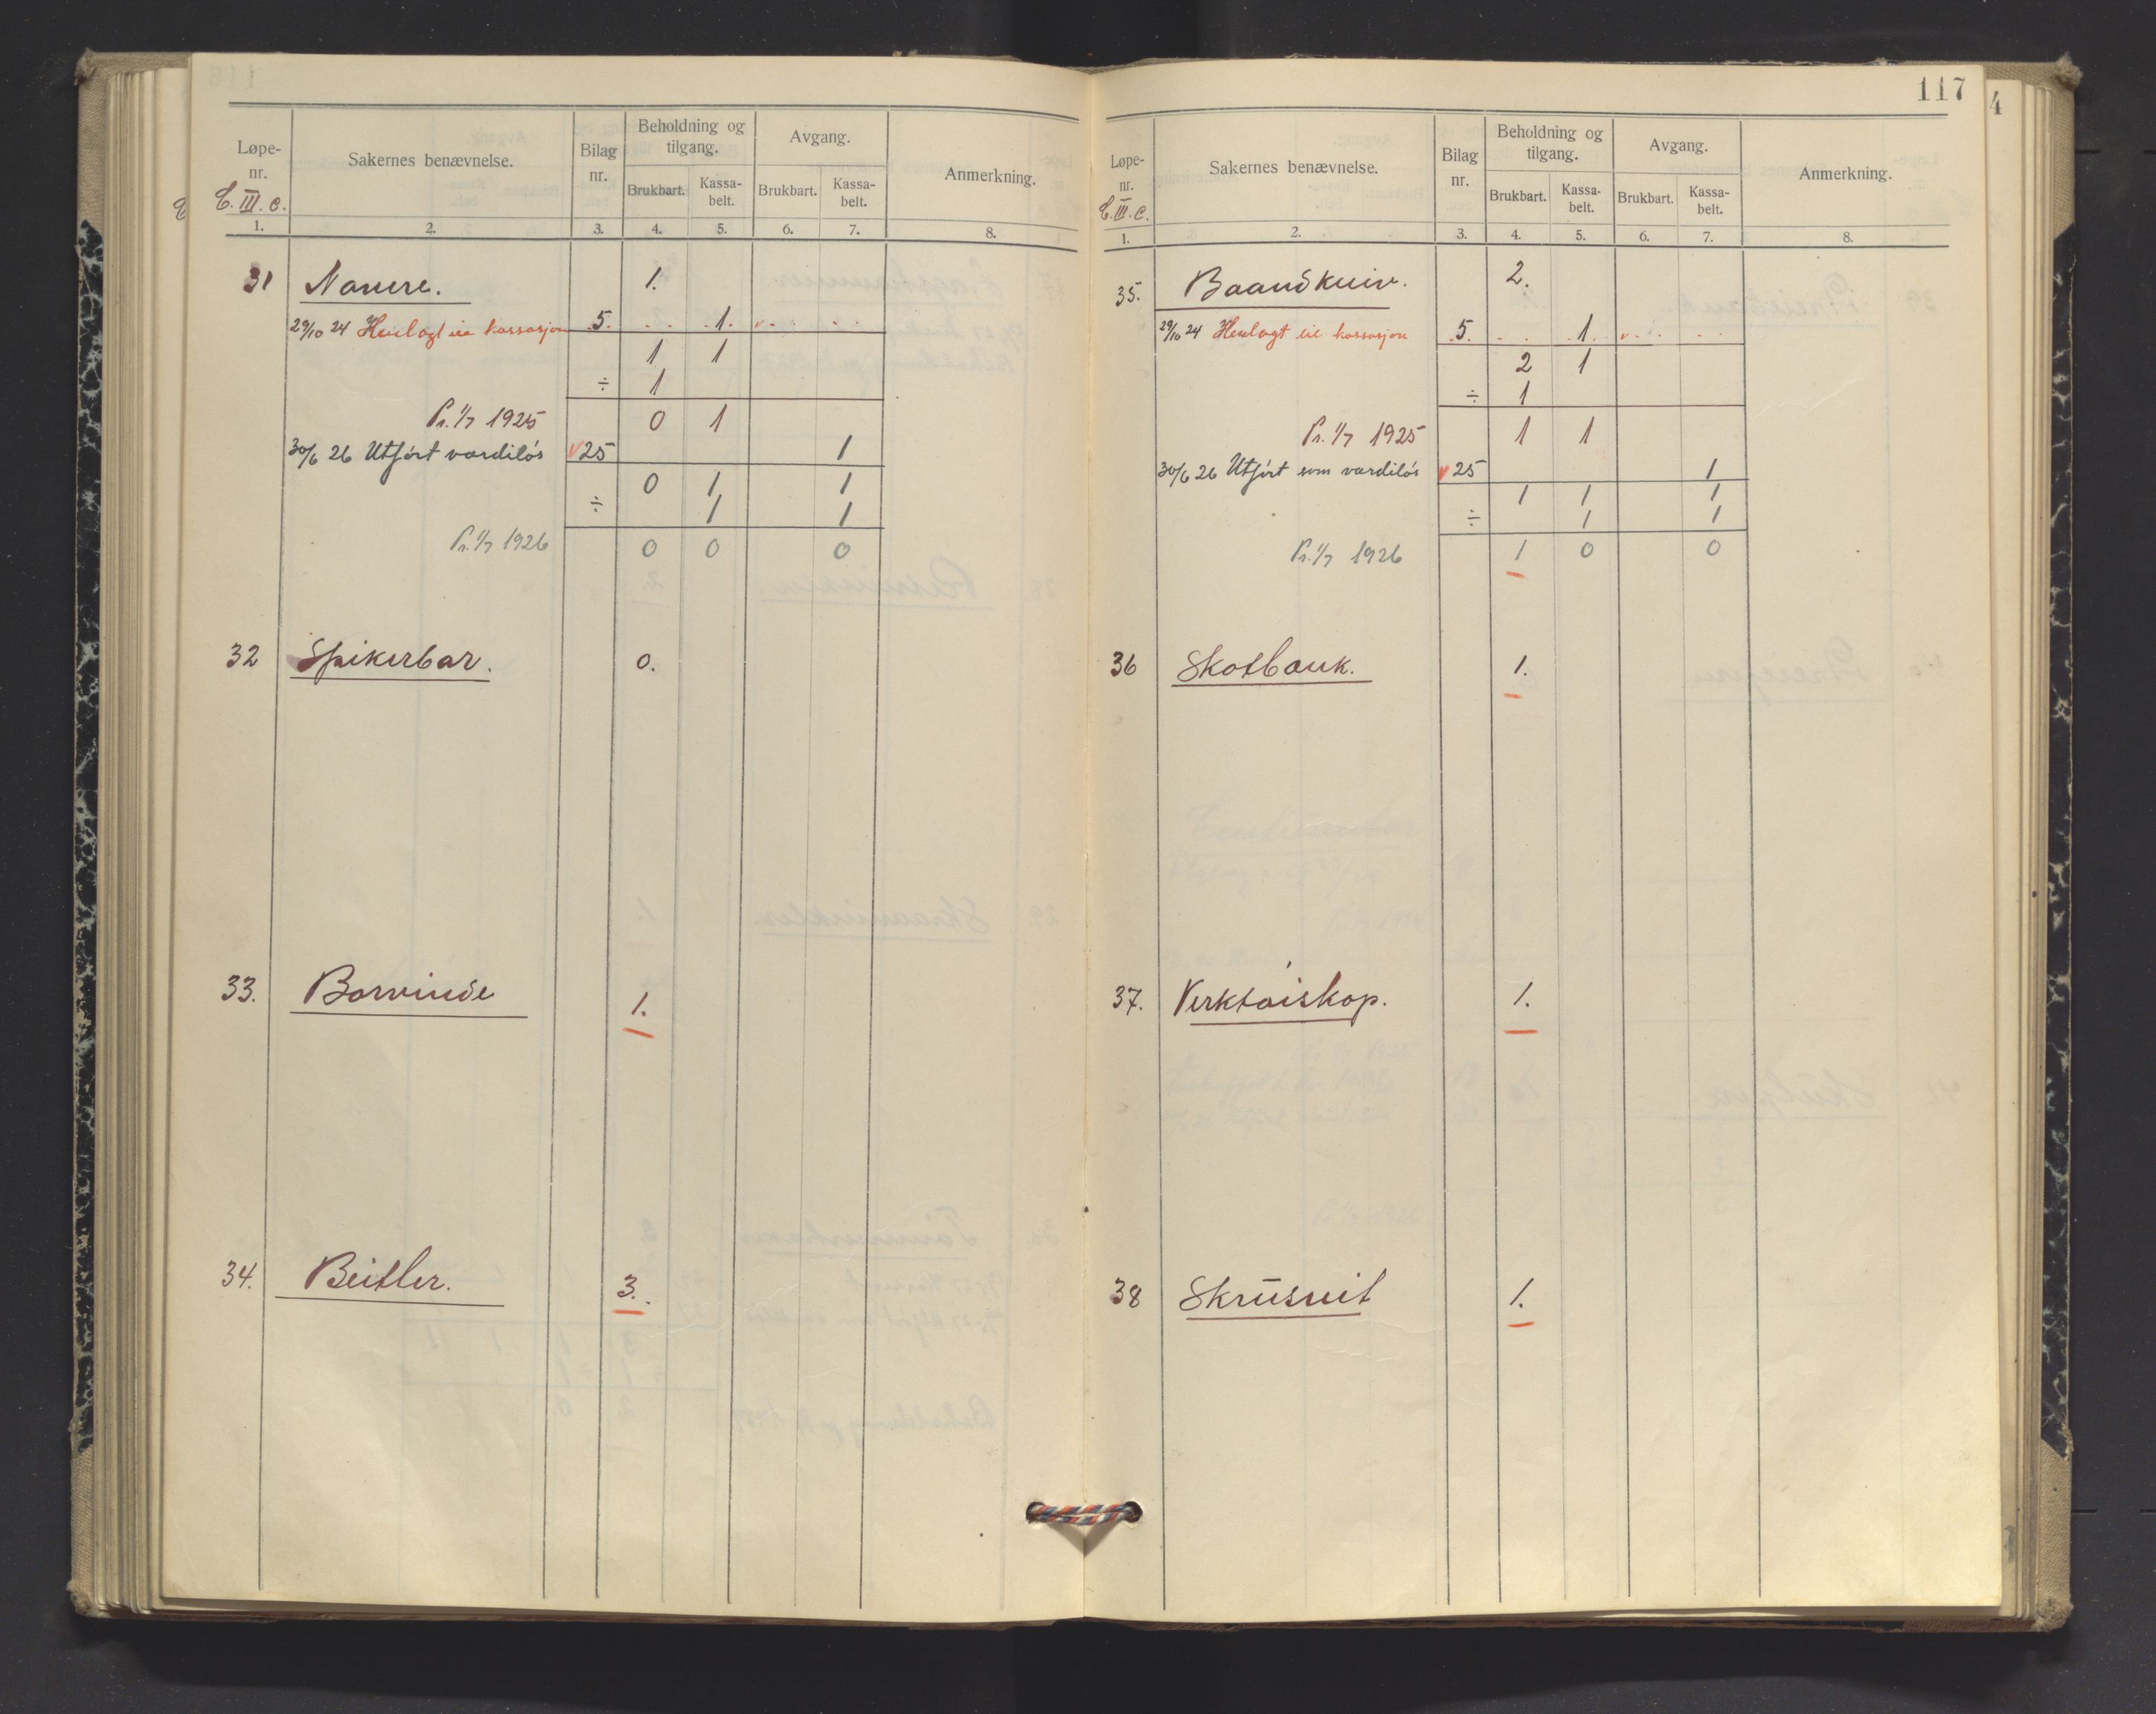 Løpe-
nr.
C. III. c.
Sakernes benævnelse.
Bilag
nr.
Beholdning og
tilgang.
Avgang.
Anmerkning.
Brukbart.
Kassa-
belt.
Brukbart.
Kassa-
belt.
1. 2. 3. 4. 5. 6. 7. 8.
31 Navere. 1.
29/10 24 Henlagt til kassasjon 5. 1.
1 1
÷ 1
Pr. 1/7 1925 0 1
30/6 26 Utført værdiløs 25 1
0 1 1
÷ 1 1
Pr. 1/7 1926 0 0 0
32 Spikerbar. 0.
33. Borvinde 1.
34. Beitler. 3.
117
4
Løpe-
nr.
C. III. c.
Sakernes benævnelse.
Bilag
nr.
Beholdning og
tilgang.
Avgang.
Anmerkning.
Brukbart.
Kassa-
belt.
Brukbart.
Kassa-
belt.
1. 2. 3. 4. 5. 6. 7. 8.
35. Baandkniv. 2.
29/10 24 Henlagt til kassasjon 5. 1.
2 1
÷ 1
Pr. 1/7 1925 1 1
30/6 26 Utført som værdiløs 25 1
1 1 1
÷ 1 1
Pr. 1/7 1926 1 0 0
36 Skotbank. 1.
37. Verktøiskap. 1.
38 Skrustit 1.